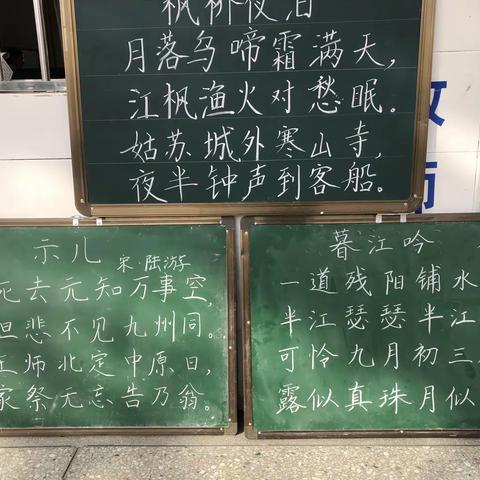 枫桥夜泊
月落乌啼霜满天,
江枫渔火对愁眠。
姑苏城外寒山寺,
夜半钟声到客船。
示儿 宋·陆游
死去元知万事空,
但悲不见九州同。
王师北定中原日,
家祭无忘告乃翁。
暮江吟
一道残阳铺水
半江瑟瑟半江
可怜九月初三
露似真珠月似